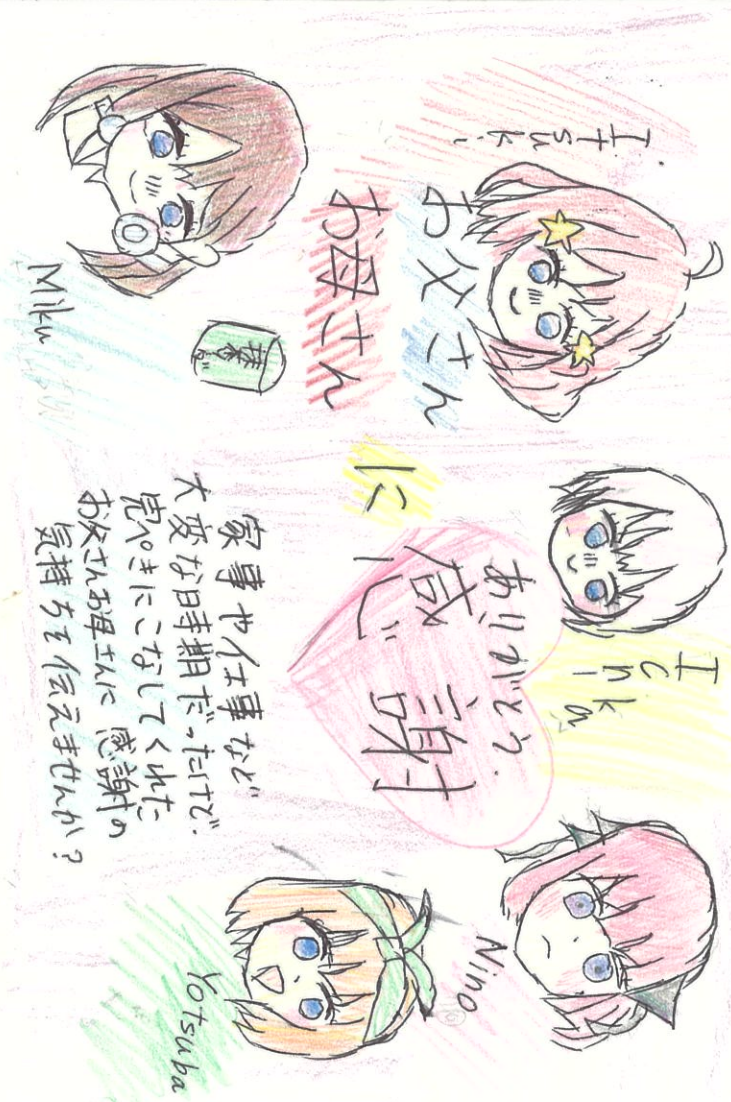 Itsuki
お父さん
お母さん
に
ありがとう.
感謝
Ichika
Nino
Miku
Yotsuba
家事や仕事など
大変な時期だったけど、
完ぺきにこなしてくれた
お父さんお母さんに感謝の
気持ちを伝えませんか?